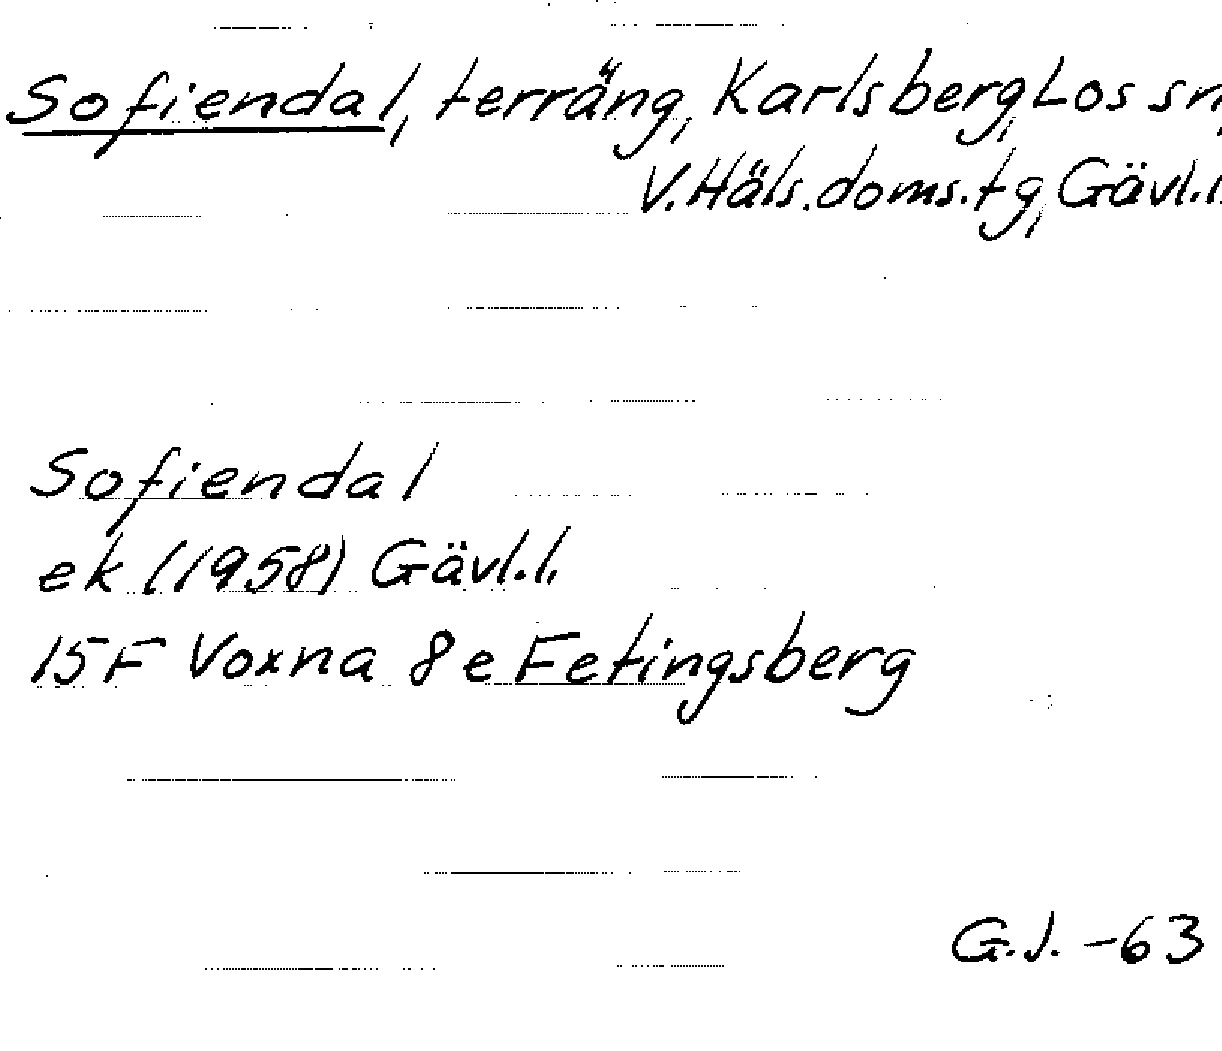 Sofiendal, terräng, Karlsberg, Los sn,
V. Häls. doms. tg, Gävl. l.
Sofiendal
ek (1958) Gävl. l.
15F Voxna 8e Fetingsberg
G.J. -63